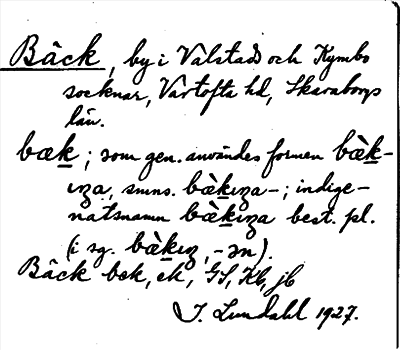 Bäck, by i Valstads och Kymbo
socknar, Vartofta hd, Skaraborgs
län.
bæk; som gen. användes formen bæ̀k-
ıɳa, smns. bæ̀kıɳa-; indige-
natsnamn bæ̀kıɳa best. pl.
(i sg. bæ̀kıɳ, -ən).
Bäck bek, ek, GS, Kb, jb
I. Lundahl 1927.